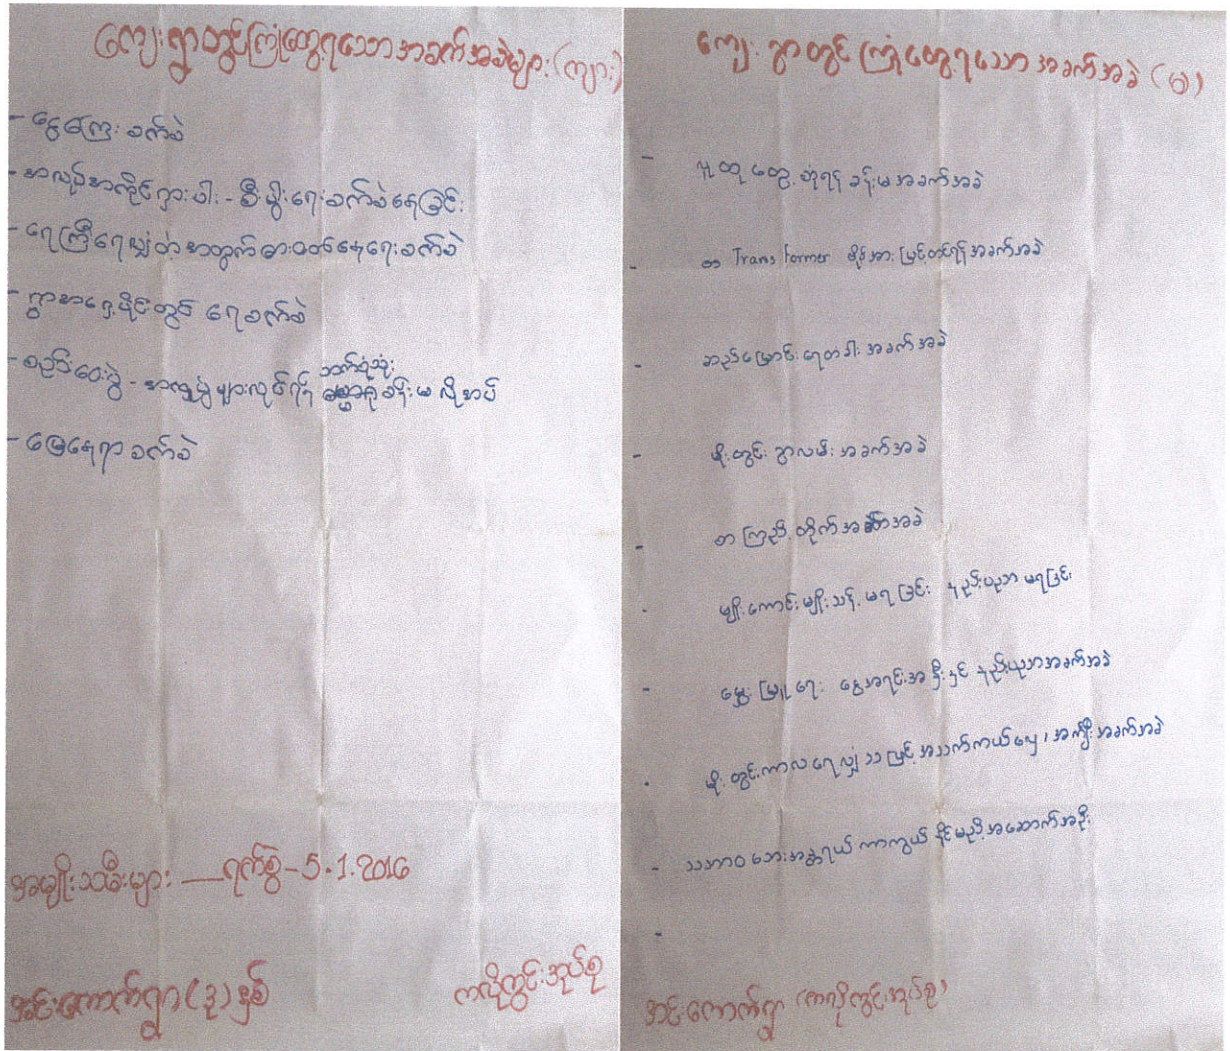 ကျေးရွာတွင်ကြုံတွေ့ရသောအခက်အခဲများ (ကျား)
- ငွေကြေးခက်ခဲ
- အလုပ်အကိုင်ရှားပါး - စီးပွါးရေးခက်ခဲနေခြင်း
- ရေကြီးရေလျှံတဲ့အတွက်စားဝတ်နေရေးခက်ခဲ
- ရွာအရှေ့ပိုင်းတွင် ရေခက်ခဲ
- စည်းဝေးပွဲ - အလှူပွဲများလုပ်ရန် ဘက်စုံသုံး ခန်းမလိုအပ်
- မြေနေရာခက်ခဲ
အမျိုးသမီးများ — ရက်စွဲ - 5.1.2016
အင်းကောက်ရွာ (ဒု) နှစ်
ကလိုကွင်းအုပ်စု
ကျေးရွာတွင်ကြုံတွေ့ရသောအခက်အခဲ (မ)
- လူထုတွေ့ဆုံရန် ခန်းမအခက်အခဲ
- Transformer မြှင့်တင်ရန်အခက်အခဲ
- ရေတံခါးအခက်အခဲ
- မိုးတွင်းရွာလမ်းအခက်အခဲ
- စာကြည့်တိုက်အခက်အခဲ
- မျိုးကောင်းမျိုးသန့်မရခြင်း နည်းပညာမရခြင်း
- မွေးမြူရေး ငွေအရင်းအနှီးနှင့် နည်းပညာအခက်အခဲ
- မိုးတွင်းကာလရေလျှံသဖြင့်အသက်ကယ်လှေ၊ အင်္ကျီအခက်အခဲ
- သဘာဝဘေးအန္တရာယ် ကာကွယ်နိုင်မည့်အဆောက်အဦး
-
အင်းကောက်ရွာ (ကလိုကွင်းအုပ်စု)